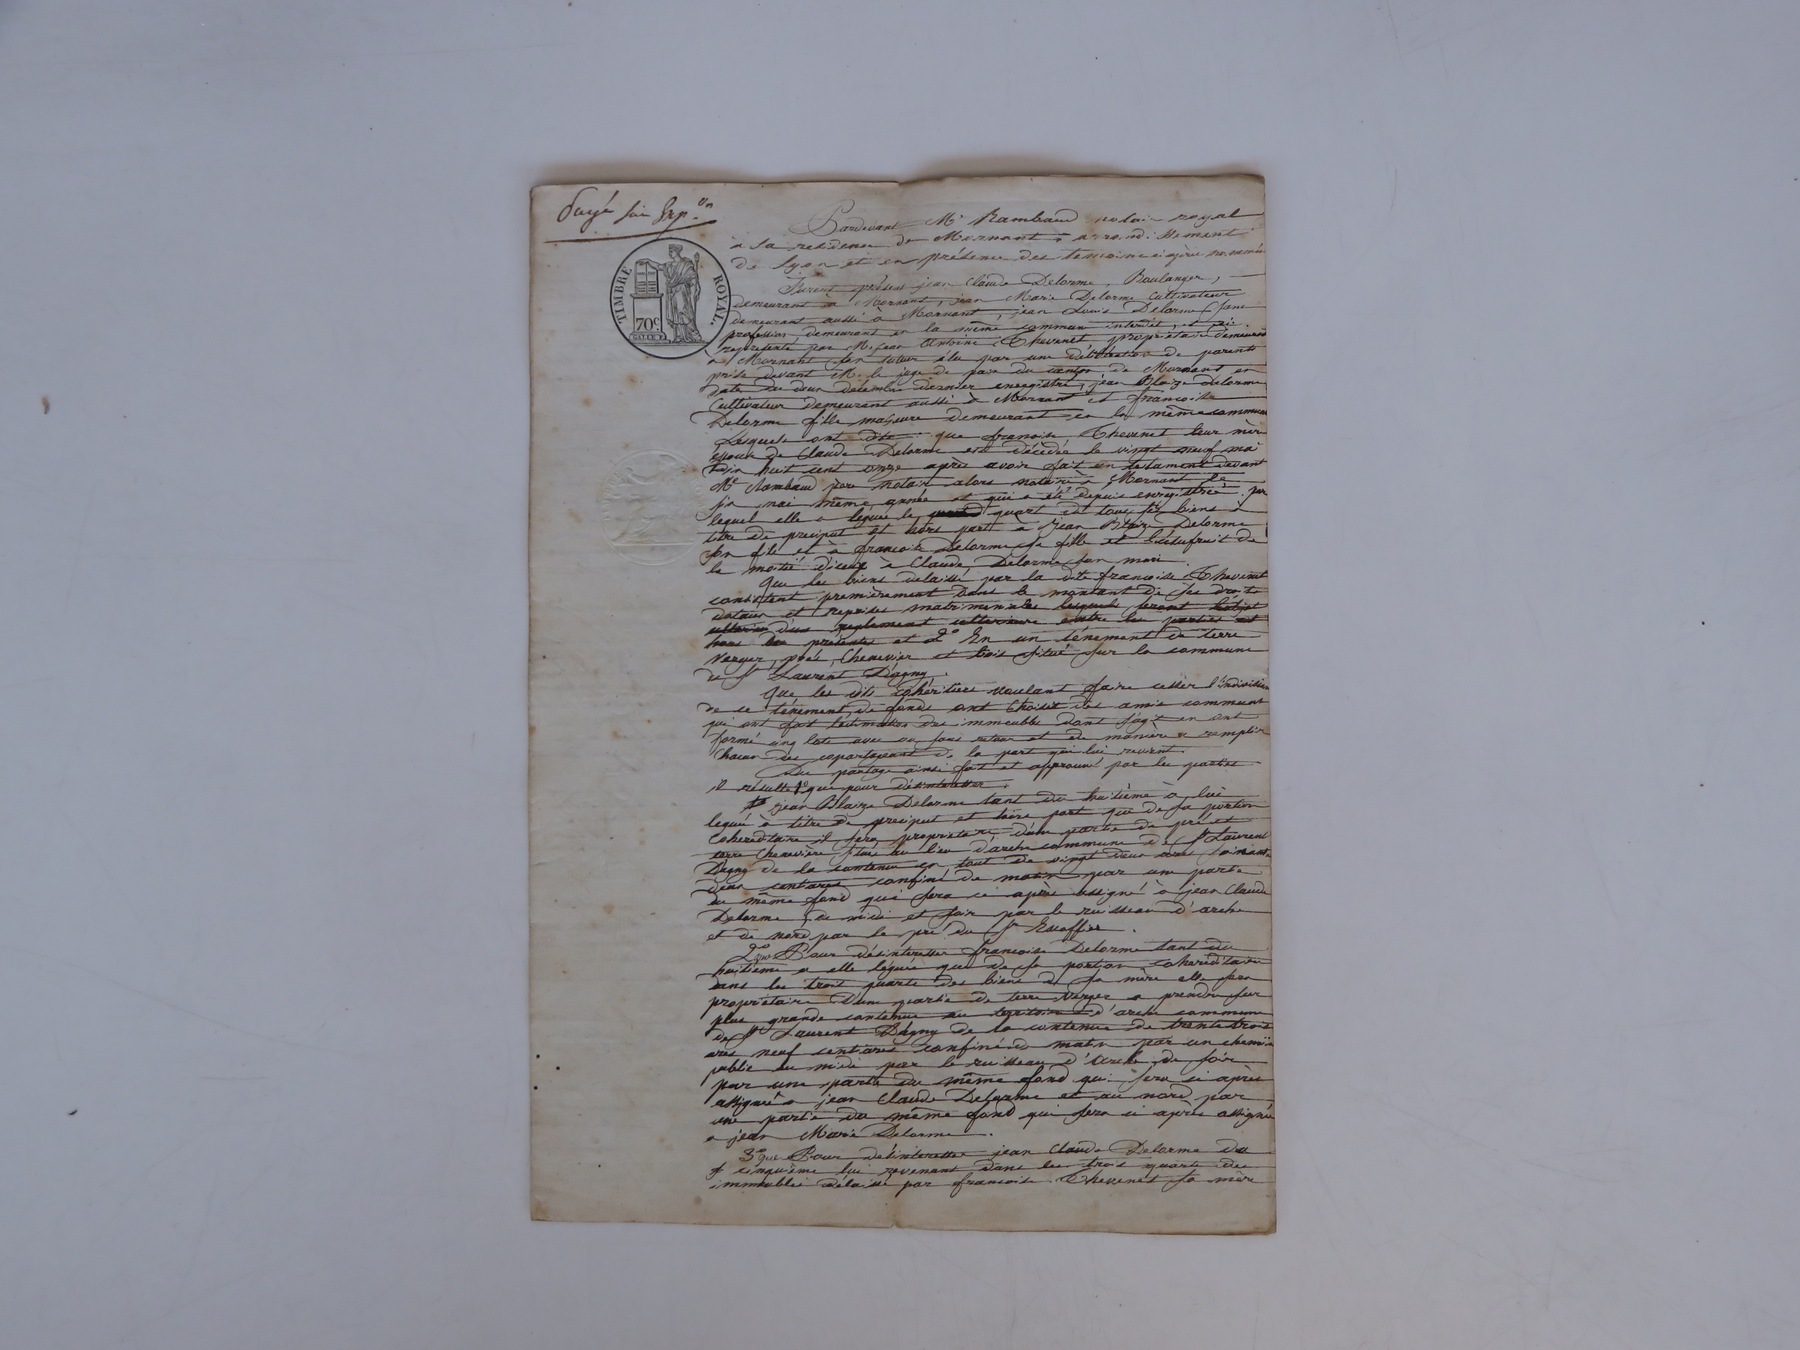 Payé sur Exp.on
TIMBRE ROYAL.
70c
Pardevant Me Rambaud notaire royal
à la residence de Mornant, arrondissement
de Lyon et en présence des temoins ci après nommés
Furent présens jean Claude Delorme, Boulanger,
demeurant à Mornant, jean Marie Delorme Cultivateur
demeurant aussi à Mornant, jean Louis Delorme sans
profession demeurant en la même commune interdit, et ici
représenté par M. jean Antoine Thevenet, propriétaire demeurant
à Mornant son tuteur élu par une délibération de parents
prise devant M. le juge de paix du canton de Mornant en
date du deux décembre dernier enregistré, jean Blaize Delorme
Cultivateur demeurant aussi à Mornant et francoise
Delorme fille majeure demeurant en la même commune
Lesquels ont dit que francoise Thevenet leur mère
épouse de Claude Delorme est décédée le vingt neuf mai
dix huit cent onze après avoir fait un testament devant
Me Rambaud père notaire alors notaire à Mornant le
six mai même année et qui a été depuis enregistré par
lequel elle a léguée le quart de tous ses biens à
titre de preciput et hors part à Jean Blaize Delorme
son fils et à francoise Delorme sa fille et l'usufruit de
la moitié d'iceux à Claude Delorme son mari.
Que les biens delaissé par la dite francoise Thevenet
consistent premièrement dans le montant de ses droits
dotaux et reprises matrimoniales lesquels seront l'objet
d'un reglement ulterieure entre les parties et
hors des présentes et 2o En un ténement de terre
verger, pré, Chenevier et bois situé sur la commune
de St Laurent Dagny.
Que les dits Cohéritiers voulant faire cesser l'indivision
de ce ténement de fonds ont Choisit des amis communs
qui ont fait l'estimation des immeubles dont s'agit en ont
formé cinq lots avec ou sans retour et de manière à remplir
Chacun des copartageant de la part qui lui revient.
Du partage ainsi fait et approuvé par les parties
il résulte 1o que pour désinteresser
jean Blaize Delorme tant du huitième à lui
legué à titre de preciput et hors part que de sa portion
Cohéréditaire il sera propriétaire d'une partie de pré et
terre Chenevière situé au lieu d'arche commune de St Laurent
Dagny de la contenue en tout de vingt deux ares soixante
deux centiares confiné de matin par une partie
du même fond qui sera ci après assigné à jean Claude
Delorme, de midi et soir par le ruisseau d'arche
et de nord par le pré du Sr Escoffier.
2o Pour désinteresser francoise Delorme tant du
huitième à elle légué que de sa portion cohéréditaire
dans les trois quarts des biens de sa mère elle sera
propriétaire d'une partie de terre verger à prendre sur
plus grande contenue au territoire d'arche commune
de St Laurent Dagny de la contenue de trente trois
ares neuf centiares confiné de matin par un chemin
public de midi par le ruisseau d'arche de soir
par une partie du même fond qui sera ci après
assigné à jean Claude Delorme et au nord par
une partie du même fond qui sera ci après assigné
à jean Marie Delorme.
3o Pour désinteresser jean Claude Delorme du
cinquième lui revenant dans les trois quarts des
immeubles délaissé par francoise Thevenet sa mère